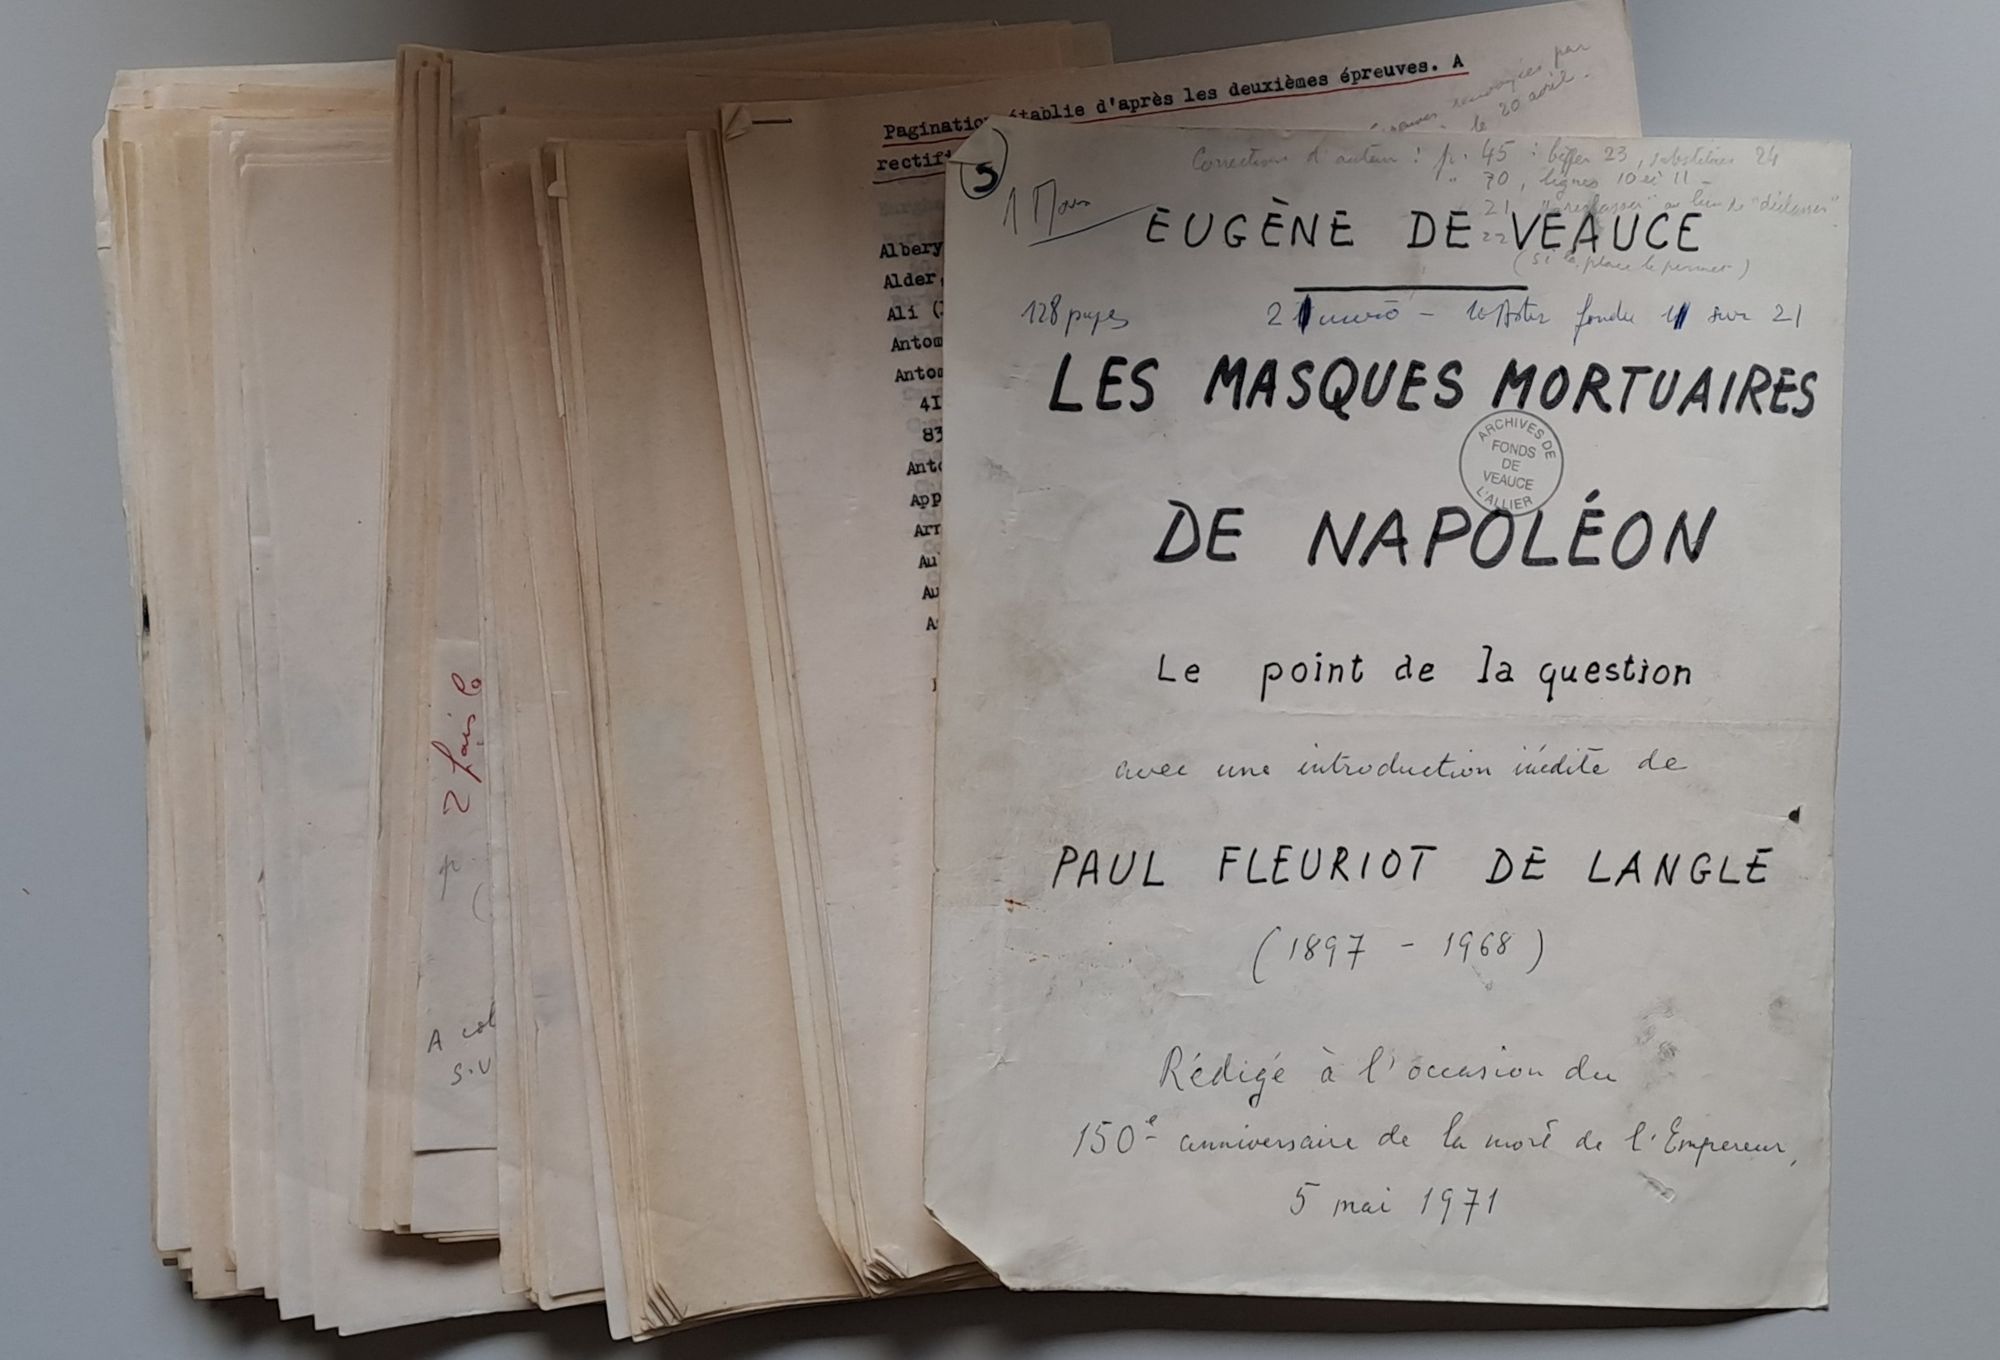 Pagination établie d'après les deuxièmes épreuves. A
rectifi
par
le 20 avril.
Albery
Alder,
Ali (
Antom
Antom
41
83
Anto
App
Arr
Au
Au
A
5
Corrections d'auteur : p. 45 : biffer 23, substituer 24
" 70, lignes 10 et 11 -
21 au lieu de "déclasser"
22
(si la place le permet)
EUGÈNE DE VEAUCE
128 pages
fondu sur 21
LES MASQUES MORTUAIRES
DE NAPOLÉON
ARCHIVES DE
FONDS
DE
VEAUCE
L'ALLIER
Le point de la question
avec une introduction inédite de
PAUL FLEURIOT DE LANGLE
(1897 - 1968)
Rédigé à l'occasion du
150e anniversaire de la mort de l'Empereur,
5 mai 1971
2 fois
p.
A col
S.V